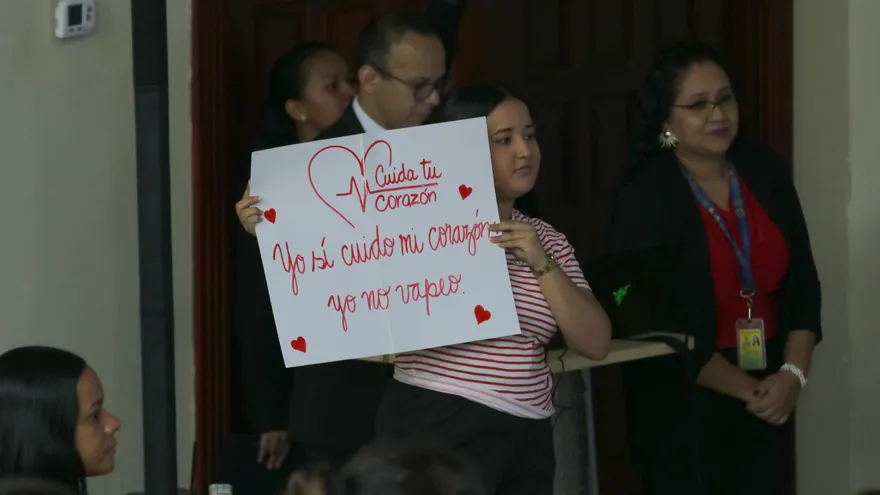 Cuida tu
corazón
Yo sí cuido mi corazón
yo no vapeo.